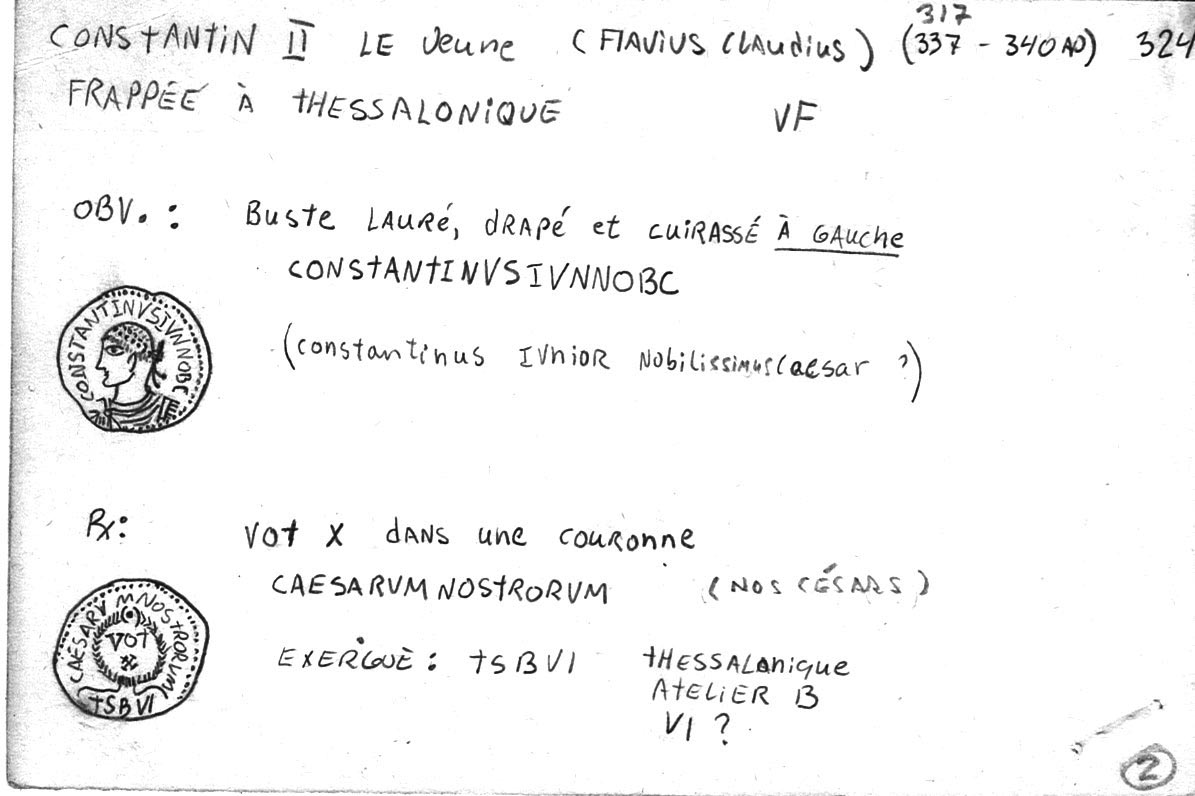 317
CONSTANTIN II LE Jeune (FLAVIUS CLAUDIUS) (337 - 340 AD) 324
FRAPPÉE À THESSALONIQUE VF
OBV. : Buste LAURÉ, dRAPÉ et CUIRASSÉ À GAUche
CONSTANTINVSIVNNOBC
CONSTANTINVSIVNNOBC
(constantinus IVNIOR Nobilissimus Caesar ?)
Rx: VOT X dANS une couRonne
CAESARVM NOSTRORVM (NOS CÉSARS)
CAESARVMNOSTRORVM
VOT
X
TSBVI
EXERGUE : TSBVI THESSALonique
ATELIER B
VI ?
2